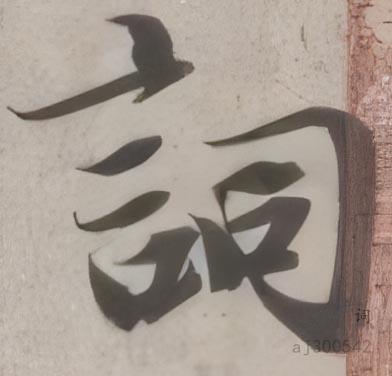 詞
词
aj300542